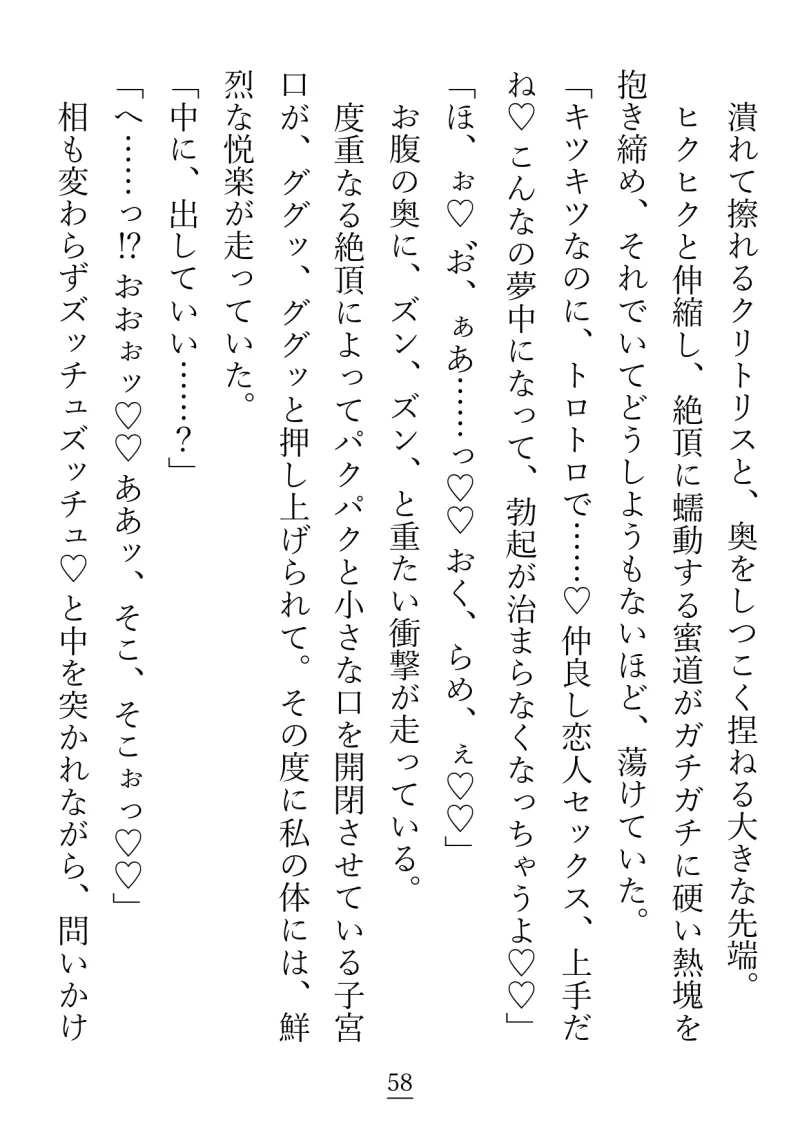 潰れて擦れるクリトリスと、奥をしつこく捏ねる大きな先端。
ヒクヒクと伸縮し、絶頂に蠕動する蜜道がガチガチに硬い熱塊を
抱き締め、それでいてどうしようもないほど、蕩けていた。
「キツキツなのに、トロトロで……♡ 仲良し恋人セックス、上手だ
ね♡ こんなの夢中になって、勃起が治まらなくなっちゃうよ♡♡」
「ほ、ぉ♡ お゛、ぁあ……っ♡♡ おく、らめ、ぇ♡♡」
お腹の奥に、ズン、ズン、と重たい衝撃が走っている。
度重なる絶頂によってパクパクと小さな口を開閉させている子宮
口が、ググッ、ググッと押し上げられて。その度に私の体には、鮮
烈な悦楽が走っていた。
「中に、出していい……？」
「へ……っ⁉ おおぉッ♡♡ ああッ、そこ、そこぉっ♡♡」
相も変わらずズッチュズッチュ♡と中を突かれながら、問いかけ
58